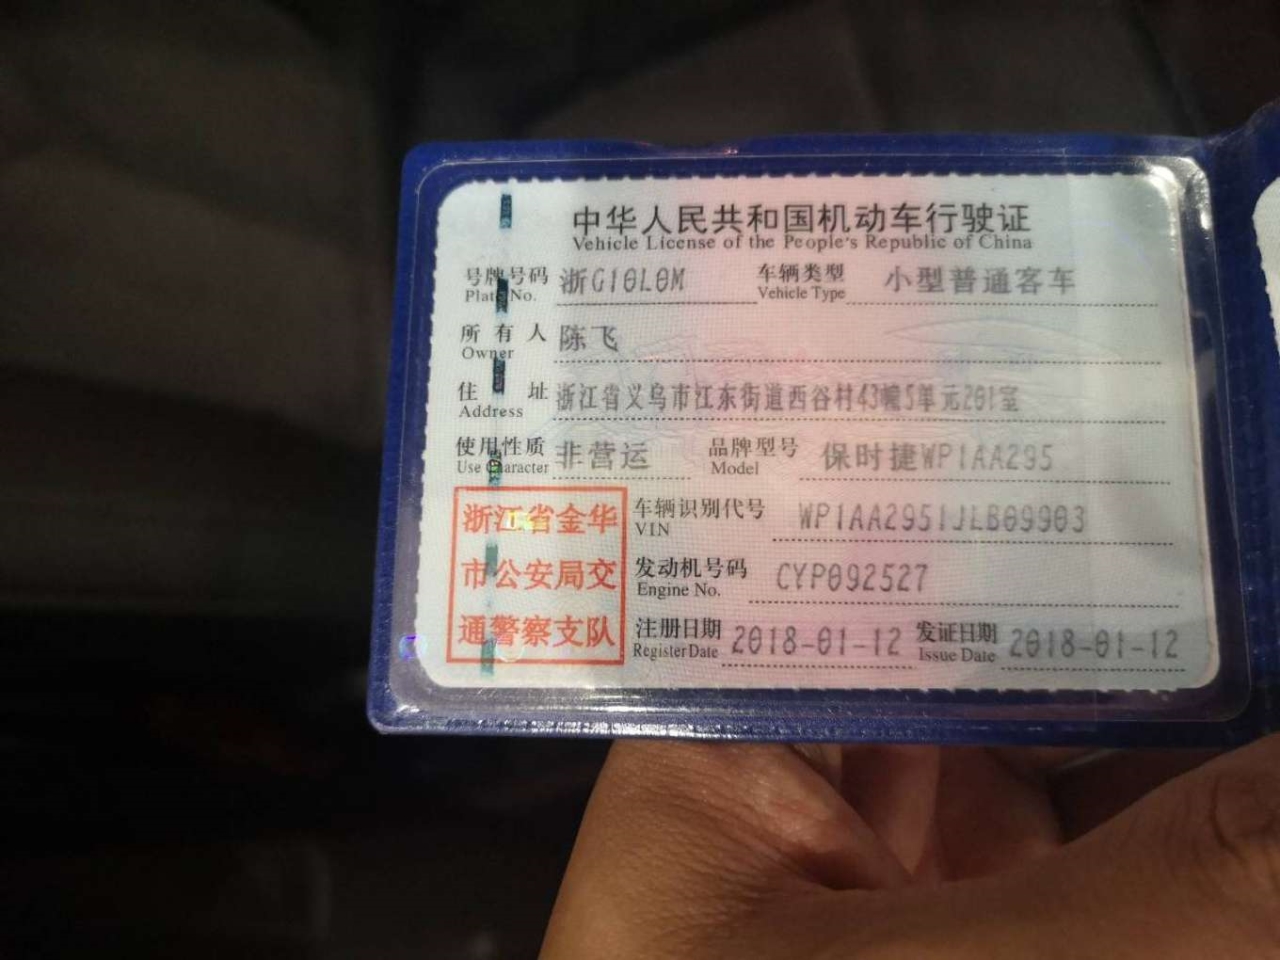 中华人民共和国机动车行驶证
Vehicle License of the People's Republic of China
号牌号码 浙G10L0M 车辆类型 小型普通客车
Plate No. Vehicle Type
所有人 陈飞
Owner
住址 浙江省义乌市江东街道西谷村43幢5单元201室
Address
使用性质 非营运 品牌型号 保时捷WP1AA295
Use Character Model
浙江省金华
市公安局交
通警察支队
车辆识别代号 WP1AA2951JLB09903
VIN
发动机号码 CYP092527
Engine No.
注册日期 2018-01-12 发证日期 2018-01-12
Register Date Issue Date